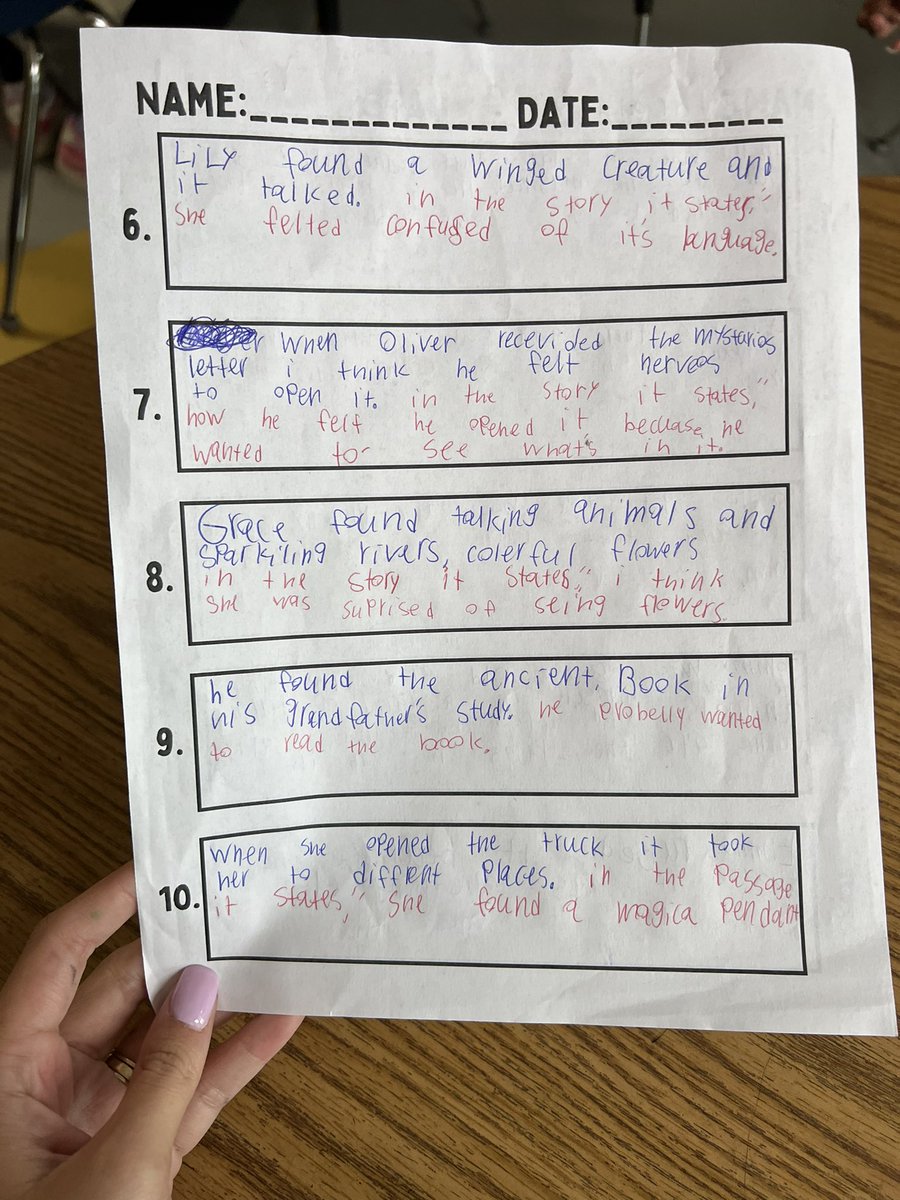 NAME:_____________ DATE:_________
6.
LiLy found a winged creature and
it talked. in the story it states,"
She felted confuged of it's language.
7.
when Oliver recevided the mystarios
letter i think he felt nerveos
to open it. in the story it states,"
how he felt he opened it becuase he
wanted to see what's in it.
8.
Grace found talking animals and
sparkiling rivers, colerful flowers
in the story it states," i think
she was suprised of seing flowers.
9.
he found the ancient, Book in
his grandfather's study. he probelly wanted
to read the book.
10.
when she opened the truck it took
her to diffrent places. in the passage
it states," she found a magica pendant